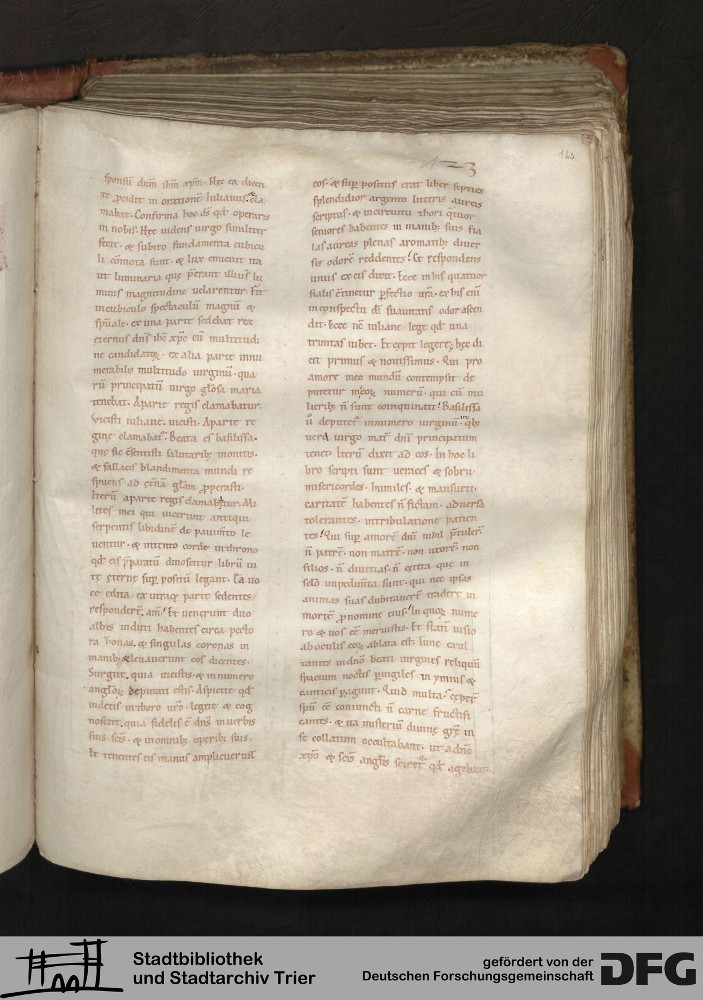 123
123
sponsū dnm ihm xpm. Hęc ea dicen
te ꝓcidit in oratione Iulianus. & cla
mabat. Confirma hoc ds qd operaris
in nobis. Hęc uidens uirgo similiter
fecit. & subito fundamenta cubicu
li cōmota sunt. & lux emicuit ita
ut luminaria quę p̄erant illius lu
minis magnitudine uelarentur. Fit
in cubiculo spectaculū magnū &
spīuale. ex una parte sedebat rex
ęternus dns ihc xpc cū multitudi
ne candidatoꝝ. ex alia parte innu
merabilis multitudo uirginū. qua
rū principatū uirgo glosa maria
tenebat. A parte regis clamabatur.
Vicisti iuliane. uicisti. A parte re
ginę clamabat. Beata es basilissa.
quę sic c̄sentisti salutarib; monitis.
& fallacis blandimenta mundi re
spuens ad ęt̄nā glam p̄parasti.
Iterū a parte regis clamabatur. Mi
lites mei qui uicerunt antiqui
serpentis libidinē de pauimto le
uentur. & intento corde in throno
qd eis p̄paratū dinoscitur librū ui
tę ęternę sup positū legant. Ea uo
ce edita ex utraq; parte sedentes
responder̄. am̄. Et uenerunt duo
albis induti habentes circa pecto
ra zonas. & singulas coronas in
manib; & leuauerunt eos dicentes.
Surgite. quia uicistis. & in numero
angloꝝ deputati estis. Aspicite qd
uidetis in thoro uro. legite & cog
noscite. quia fidelis ē dns in uerbis
suis scis. & in omnib; operib; suis.
Et tenentes eis manus amplacuerunt
eos. & sup positus erat liber septies
splendidior argento litteris aureis
scriptus. & in circuitu thori q̄tuor
seniores habentes in manib; suis fia
las aureas plenas aromatib; diuer
sis odorē reddentes. Et respondens
unus ex eis dixit. Ecce in his quatuor
fialis c̄tinetur p̄fectio ura. ex his eni
in conspectu di suauitatis odor ascen
dit. Ecce nc iuliane lege qd una
trinitas iubet. Et cepit legere; hęc di
cit primus & nouissimus. Qui pro
amore meo mundū contempsit de
putetur in eoꝝ numerū. qui cū mu
lierib; n̄ sunt coinquinati. Basilissa
ū deputet̄ in numero uirginū. qb;
uera uirgo mat̄ dni principatum
tenet. Iterū dixit ad eos. In hoc li
bro scripti sunt ueraces & sobrii.
misericordes. humiles. & mansueti.
caritatē habentes n̄ fictam. aduersa
tolerantes. in tribulatione patien
tes. Qui sup amorē dni nihil p̄tuler̄.
n̄ patrē. non matrē. non uxorē. non
filios. n̄ diuitias. n̄ cetera quę in
sclo impedimta sunt. qui nec ipsas
animas suas dubitauer̄ tradere in
mortē ꝓ nomine eius. In quoꝝ nume
ro & uos ēē meruistis. Et statī uisio
ab oculis eoꝝ ablata est. Tunc exul
tantes in dno beati uirgines reliquū
spacium noctis ꝑuigiles in ymnis &
canticis ꝑagunt. Quid multa. Cęper̄
spū ēē coniuncti n̄ carne fructifi
cantes. & ita misteriū diuinę grę in
se collatum occultabant. ut a dno
xpo & scis anglis sciret̄ qd agebant.
Stadtbibliothek
und Stadtarchiv Trier
gefördert von der
Deutschen Forschungsgemeinschaft
DFG